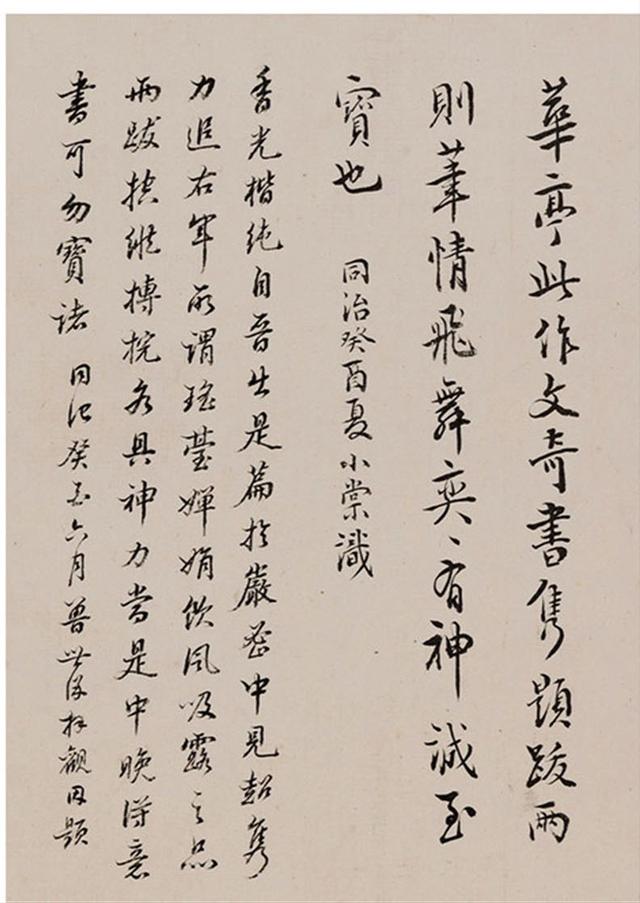 華亭此作文奇書雋題跋兩
則筆情飛舞奕〻有神誠至
寶也 同治癸酉夏小棠識
香光楷純自晉出是篇於嚴密中見超雋
力追右軍所謂瑤臺嬋娟飲風吸露之品
兩跋縱摶捖各具神力當是中晚得意
書可勿寶諸 同治癸酉六月曾世拜觀因題